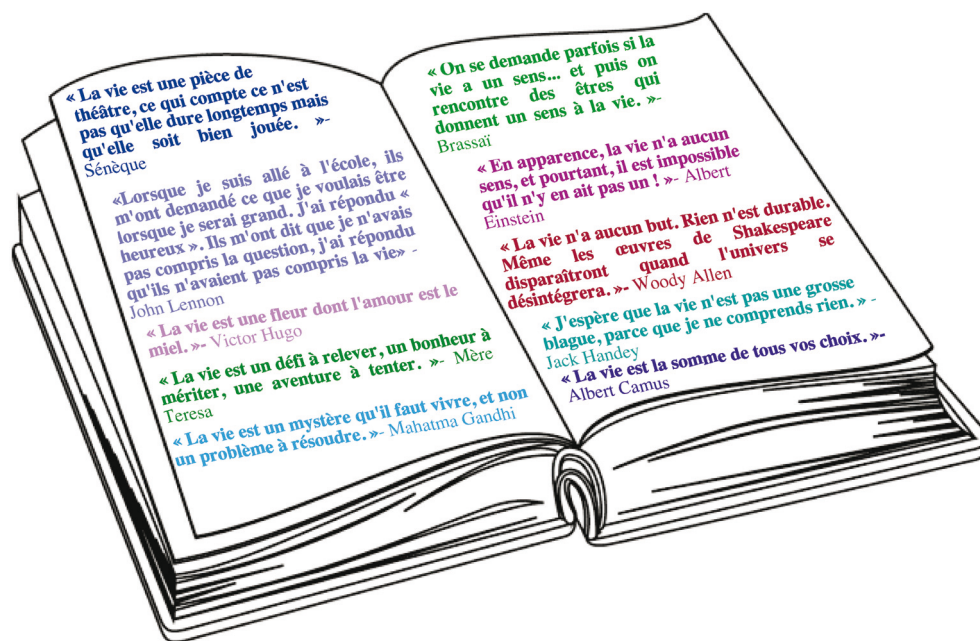 « La vie est une pièce de
théâtre, ce qui compte ce n'est
pas qu'elle dure longtemps mais
qu'elle soit bien jouée. »-
Sénèque
«Lorsque je suis allé à l'école, ils
m'ont demandé ce que je voulais être
lorsque je serai grand. J'ai répondu «
heureux ». Ils m'ont dit que je n'avais
pas compris la question, j'ai répondu
qu'ils n'avaient pas compris la vie» -
John Lennon
« La vie est une fleur dont l'amour est le
miel. »- Victor Hugo
« La vie est un défi à relever, un bonheur à
mériter, une aventure à tenter. »- Mère
Teresa
« La vie est un mystère qu'il faut vivre, et non
un problème à résoudre. »- Mahatma Gandhi
« On se demande parfois si la
vie a un sens... et puis on
rencontre des êtres qui
donnent un sens à la vie. »-
Brassaï
« En apparence, la vie n'a aucun
sens, et pourtant, il est impossible
qu'il n'y en ait pas un ! »- Albert
Einstein
« La vie n'a aucun but. Rien n'est durable.
Même les œuvres de Shakespeare
disparaîtront quand l'univers se
désintégrera. »- Woody Allen
« J'espère que la vie n'est pas une grosse
blague, parce que je ne comprends rien. » -
Jack Handey
« La vie est la somme de tous vos choix. »-
Albert Camus